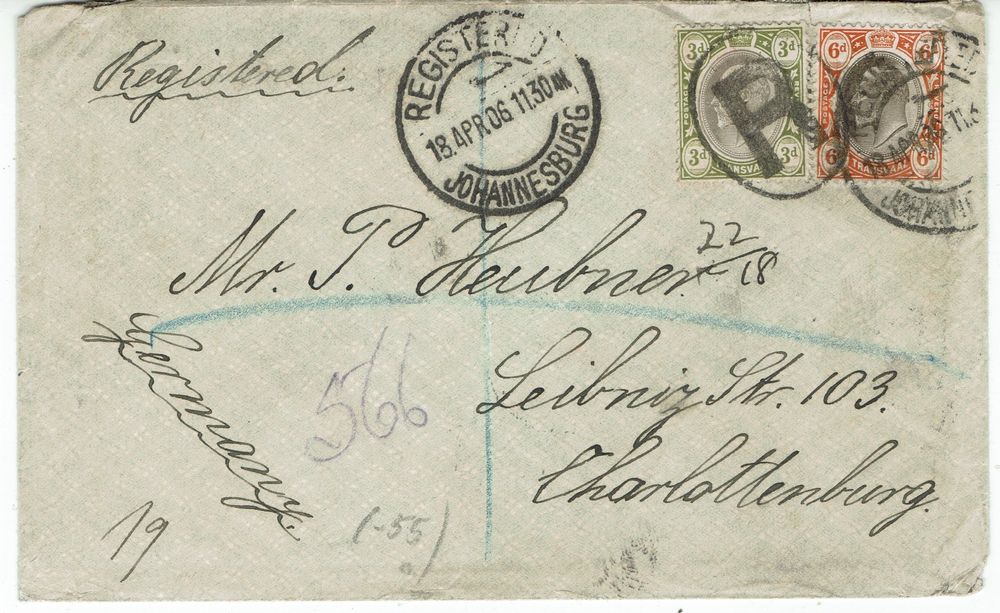 Registered.
REGISTERED
18.APR.06 11.30AM
JOHANNESBURG
3d 3d
POSTAGE
3d 3d
TRANSVAAL
R
6d 6d
POSTAGE
6d 6d
TRANSVAAL
JOHANNE
Mr. P. Heubner.
22/18
Leibniz Str. 103.
Charlottenburg.
Germany.
566
19
(-55)